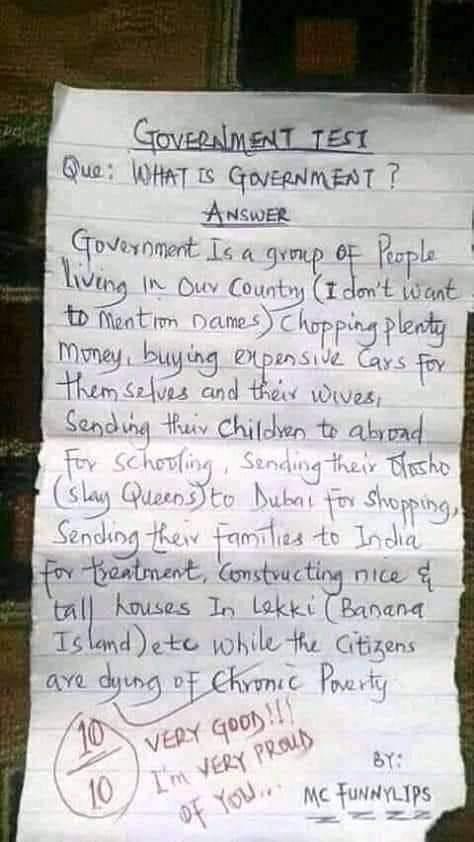 GOVERNMENT TEST
Que: WHAT IS GOVERNMENT?
ANSWER
Government Is a group of People
living in our country (I don't want
to mention names) Chopping plenty
money, buying expensive Cars for
themselves and their wives,
Sending their Children to abroad
for schooling, Sending their Olosho
(slay Queens) to Dubai for shopping,
Sending their families to India
for treatment, Constructing nice &
tall houses In Lekki (Banana
Island) etc while the Citizens
are dying of Chronic Poverty
10
10
VERY GOOD!!!
I'm VERY PROUD
OF YOU...
BY:
MC FUNNYLIPS